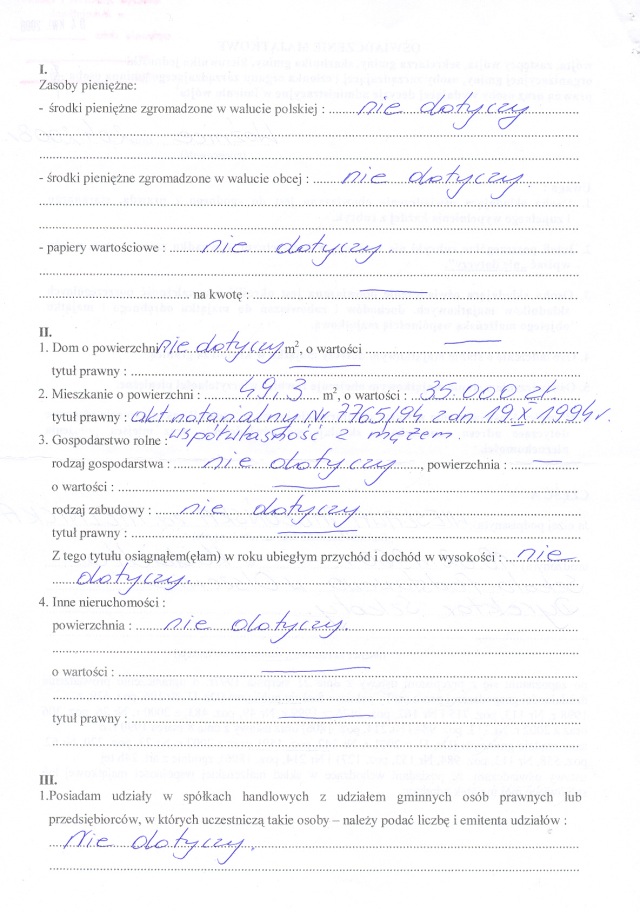 I.
Zasoby pieniężne:
- środki pieniężne zgromadzone w walucie polskiej : nie dotyczy
- środki pieniężne zgromadzone w walucie obcej : nie dotyczy
- papiery wartościowe : nie dotyczy
na kwotę : —
II.
1. Dom o powierzchni nie dotyczy m², o wartości —
tytuł prawny : —
2. Mieszkanie o powierzchni : 49,3 m², o wartości : 35.000 zł.
tytuł prawny : akt notarialny Nr 7765/94 z dn 19 X 1994 r.
współwłasność z mężem.
3. Gospodarstwo rolne :
rodzaj gospodarstwa : nie dotyczy, powierzchnia : —
o wartości : —
rodzaj zabudowy : nie dotyczy
tytuł prawny : —
Z tego tytułu osiągnąłem(ęłam) w roku ubiegłym przychód i dochód w wysokości : nie
dotyczy.
4. Inne nieruchomości :
powierzchnia : nie dotyczy.
o wartości : —
tytuł prawny : —
III.
1.Posiadam udziały w spółkach handlowych z udziałem gminnych osób prawnych lub
przedsiębiorców, w których uczestniczą takie osoby – należy podać liczbę i emitenta udziałów :
Nie dotyczy.